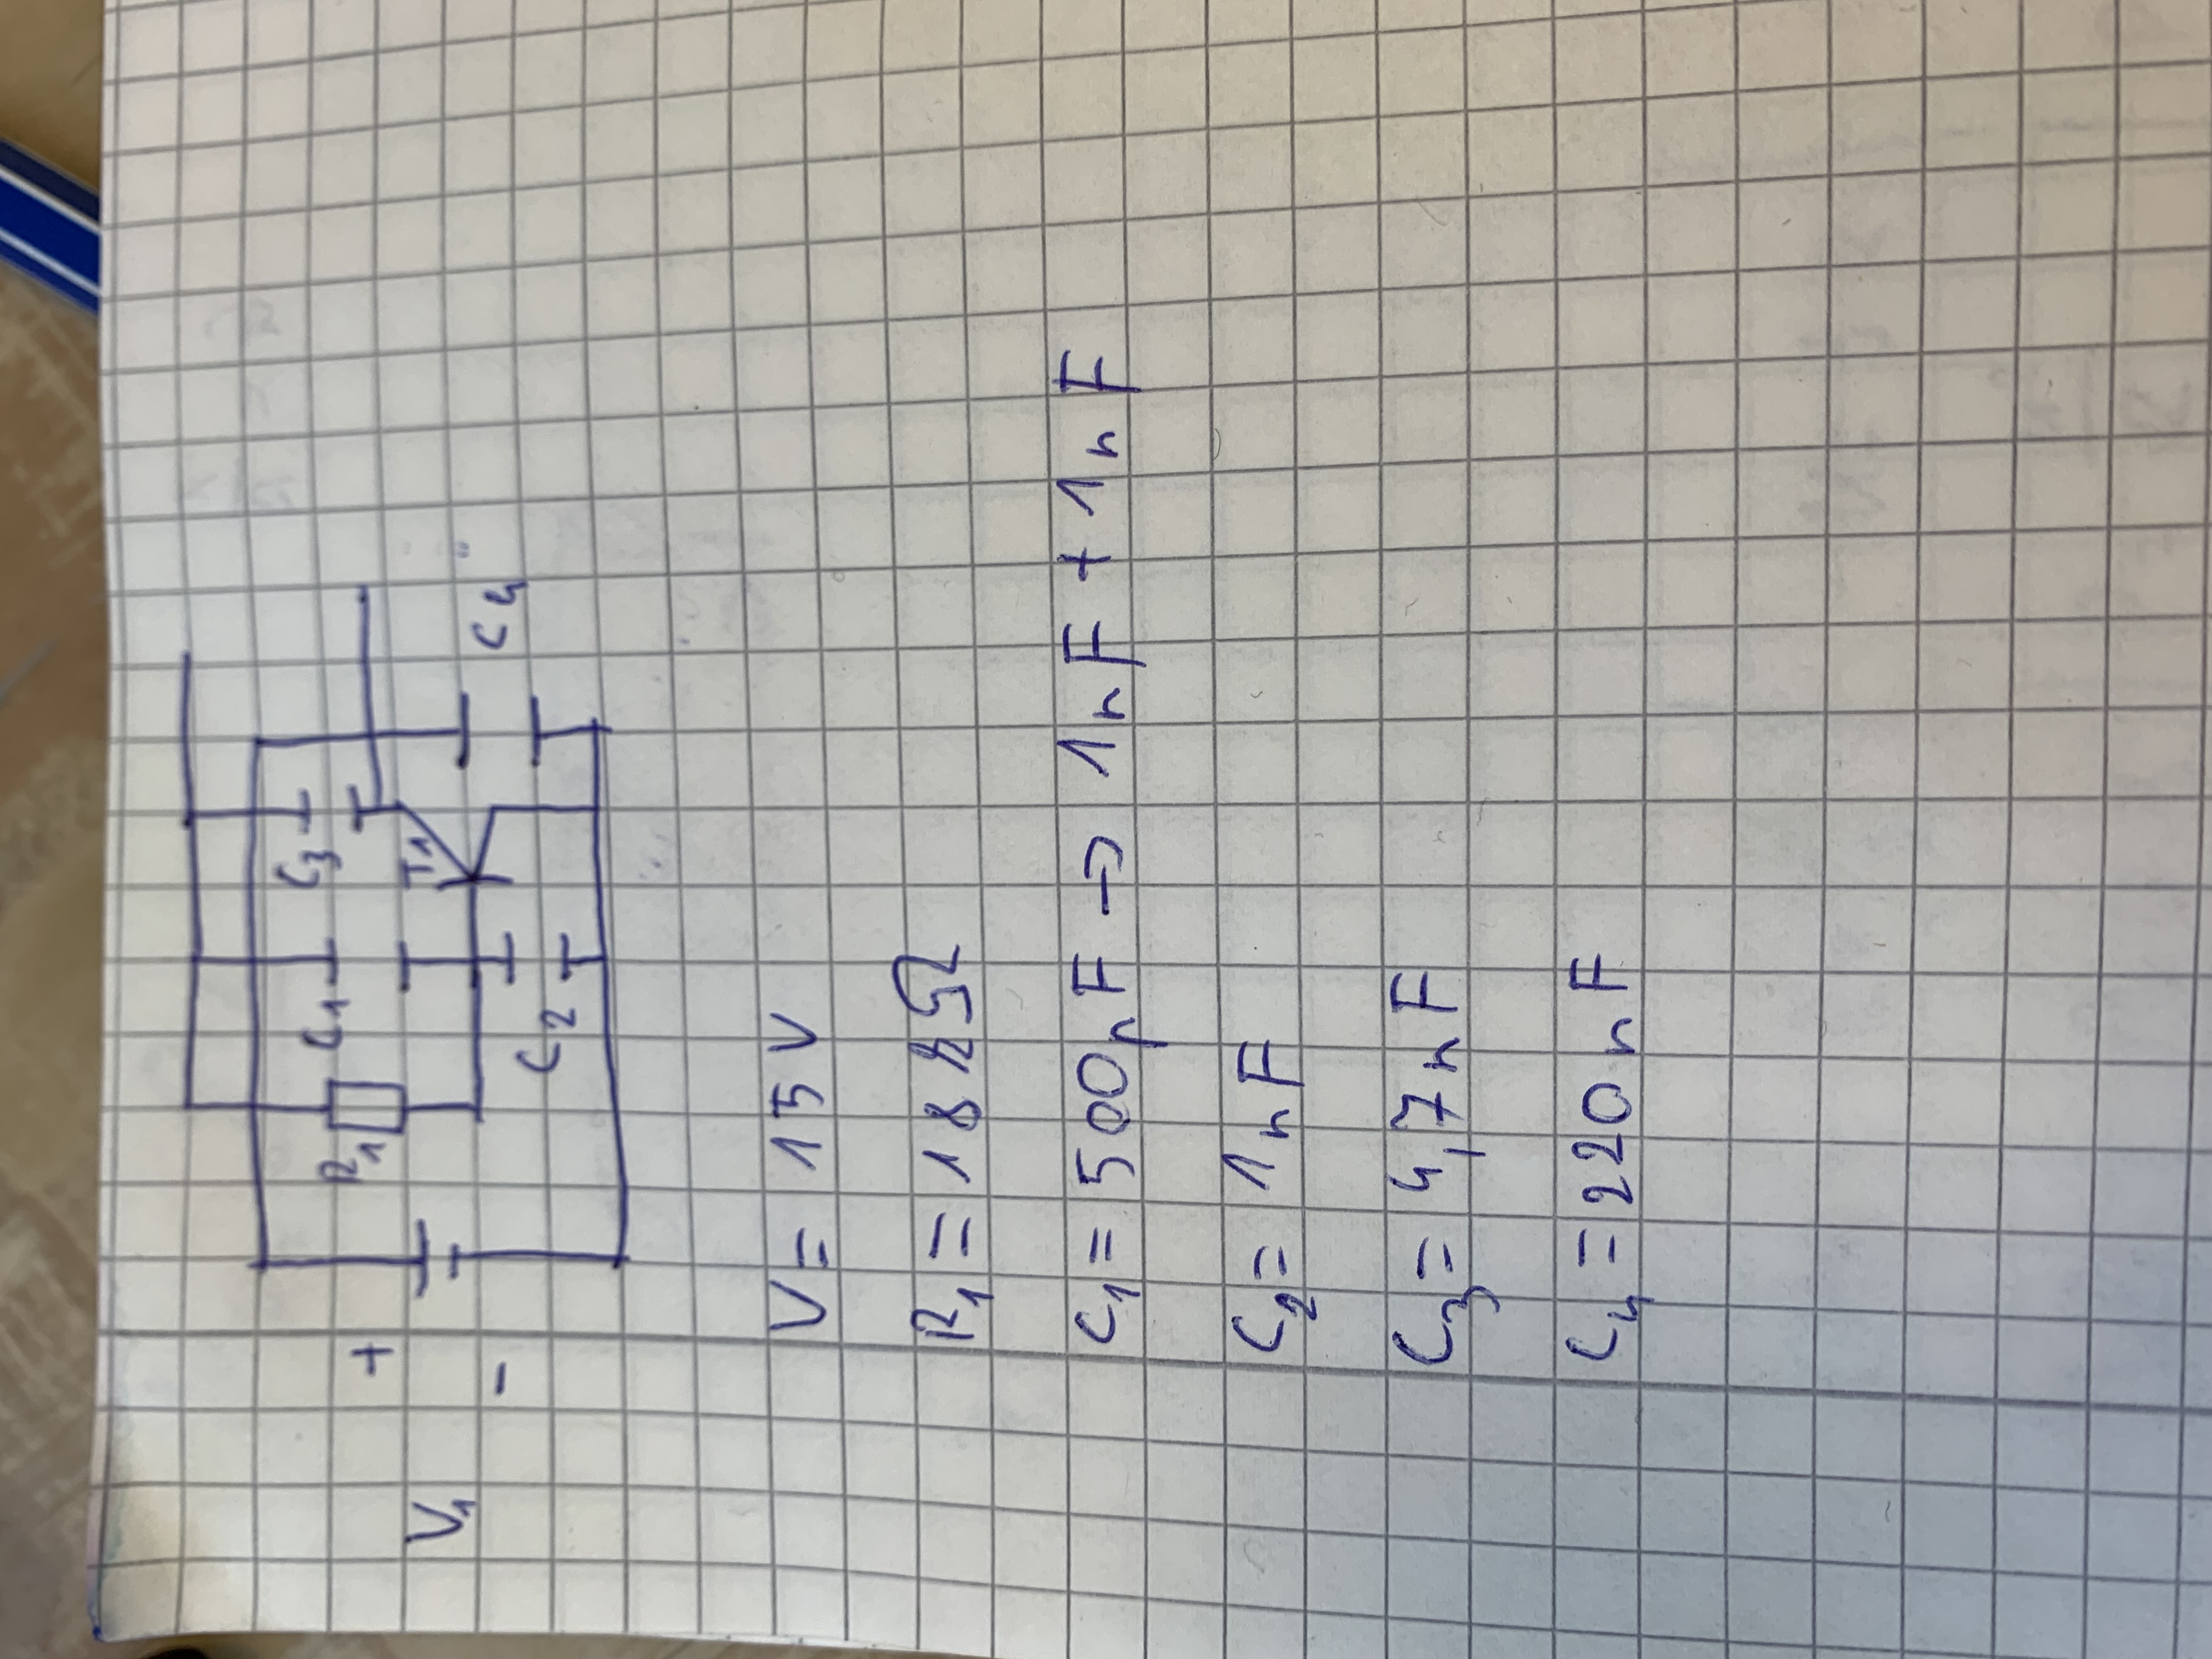 C₃
C₁
R₁
+
T₁
V₁
C₄
-
C₂
V = 15 V
R₁ = 18 kΩ
C₁ = 500pF → 1nF + 1nF
C₂ = 1nF
C₃ = 4,7nF
C₄ = 220nF